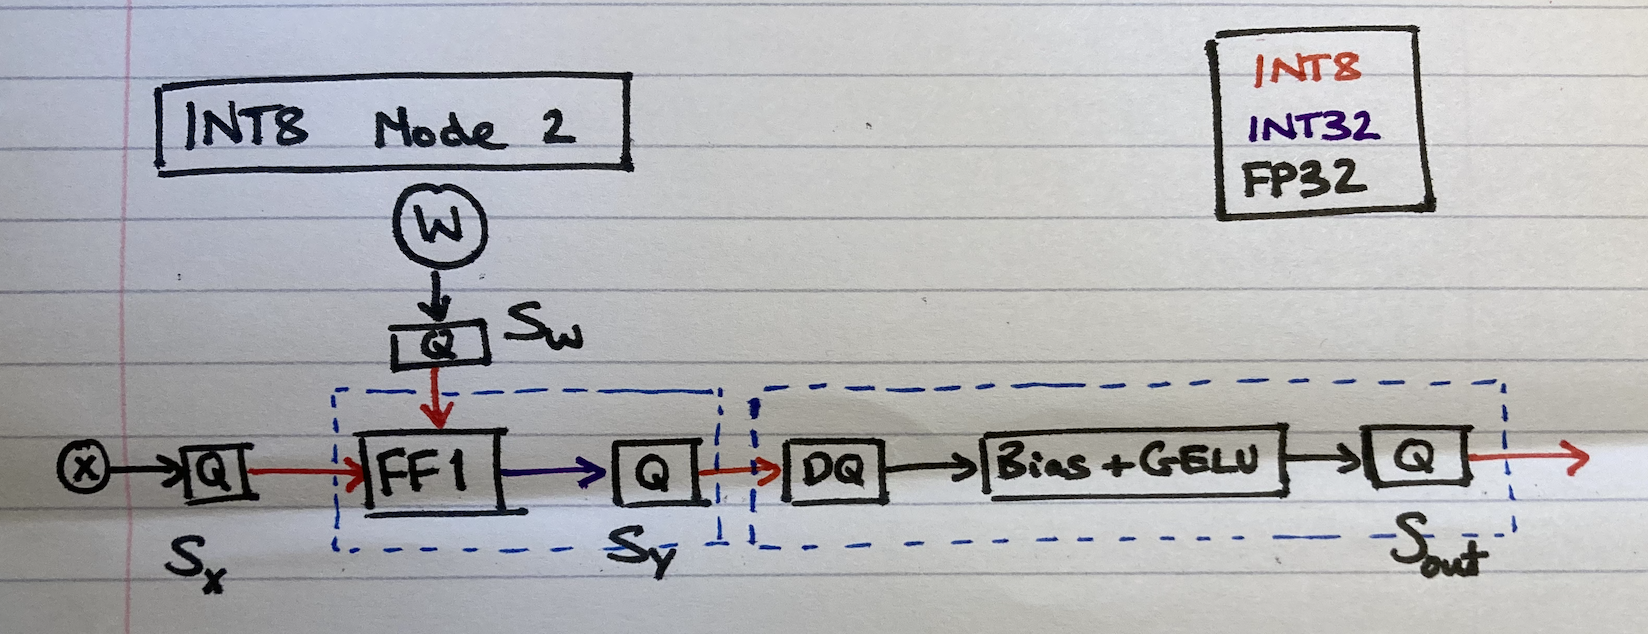 INT8 Mode 2
INT8
INT32
FP32
W
Q
Sw
X
Q
FF1
Q
DQ
Bias + GELU
Q
Sx
Sy
Sout